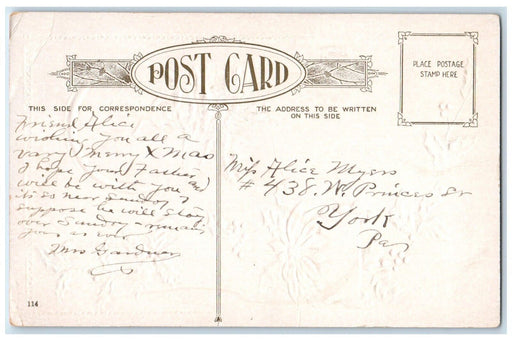 POST CARD
PLACE POSTAGE
STAMP HERE
THIS SIDE FOR CORRESPONDENCE
THE ADDRESS TO BE WRITTEN
ON THIS SIDE
Friend Alice,
wishing you all a
very merry Xmas
I hope your Father
will be with you as
its so near Sunday, I
suppose he will stay
over Sunday
you as ever
Mrs Gardner
Miss Alice Myers
# 438. W. Princess St
York
Pa
114